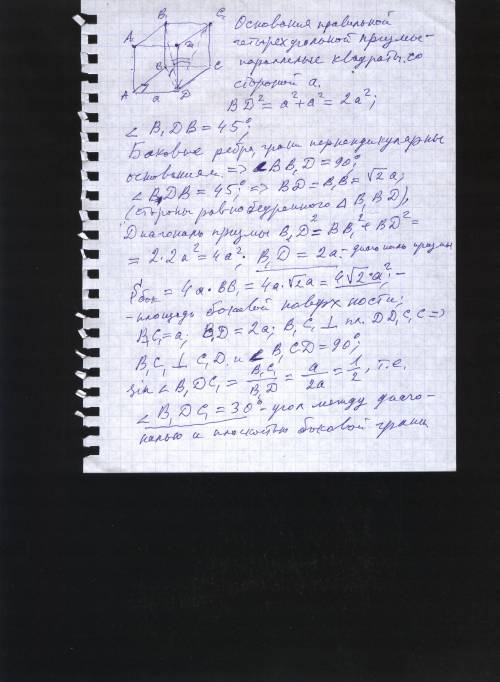 B₁ C₁
A₁ D₁
B C
A a D
Основания правильной
четырехугольной призмы-
параллельные квадраты со
стороной a.
BD² = a² + a² = 2a²;
∠ B₁DB = 45°;
Боковые ребра, грани перпендикулярны
основаниям => ∠BB₁D = 90°;
∠ B₁DB = 45°, => BD = B₁B = √2 a;
(стороны равнобедренного Δ B₁BD),
Диагональ призмы B₁D² = BB₁² + BD² =
= 2·2a² = 4a²; B₁D = 2a - диагональ призмы
Sбок = 4a · BB₁ = 4a · √2a = 4√2 · a² -
- площадь боковой поверхности;
B₁C₁ = a; B₁D = 2a; B₁C₁ ⊥ пл. DD₁C₁C =>
B₁C₁ ⊥ C₁D и ∠ B₁CD = 90°;
sin ∠ B₁DC₁ = B₁C₁/B₁D = a/2a = 1/2, т.е.
∠ B₁DC₁ = 30° - угол между диаго-
налью и плоскостью боковой грани